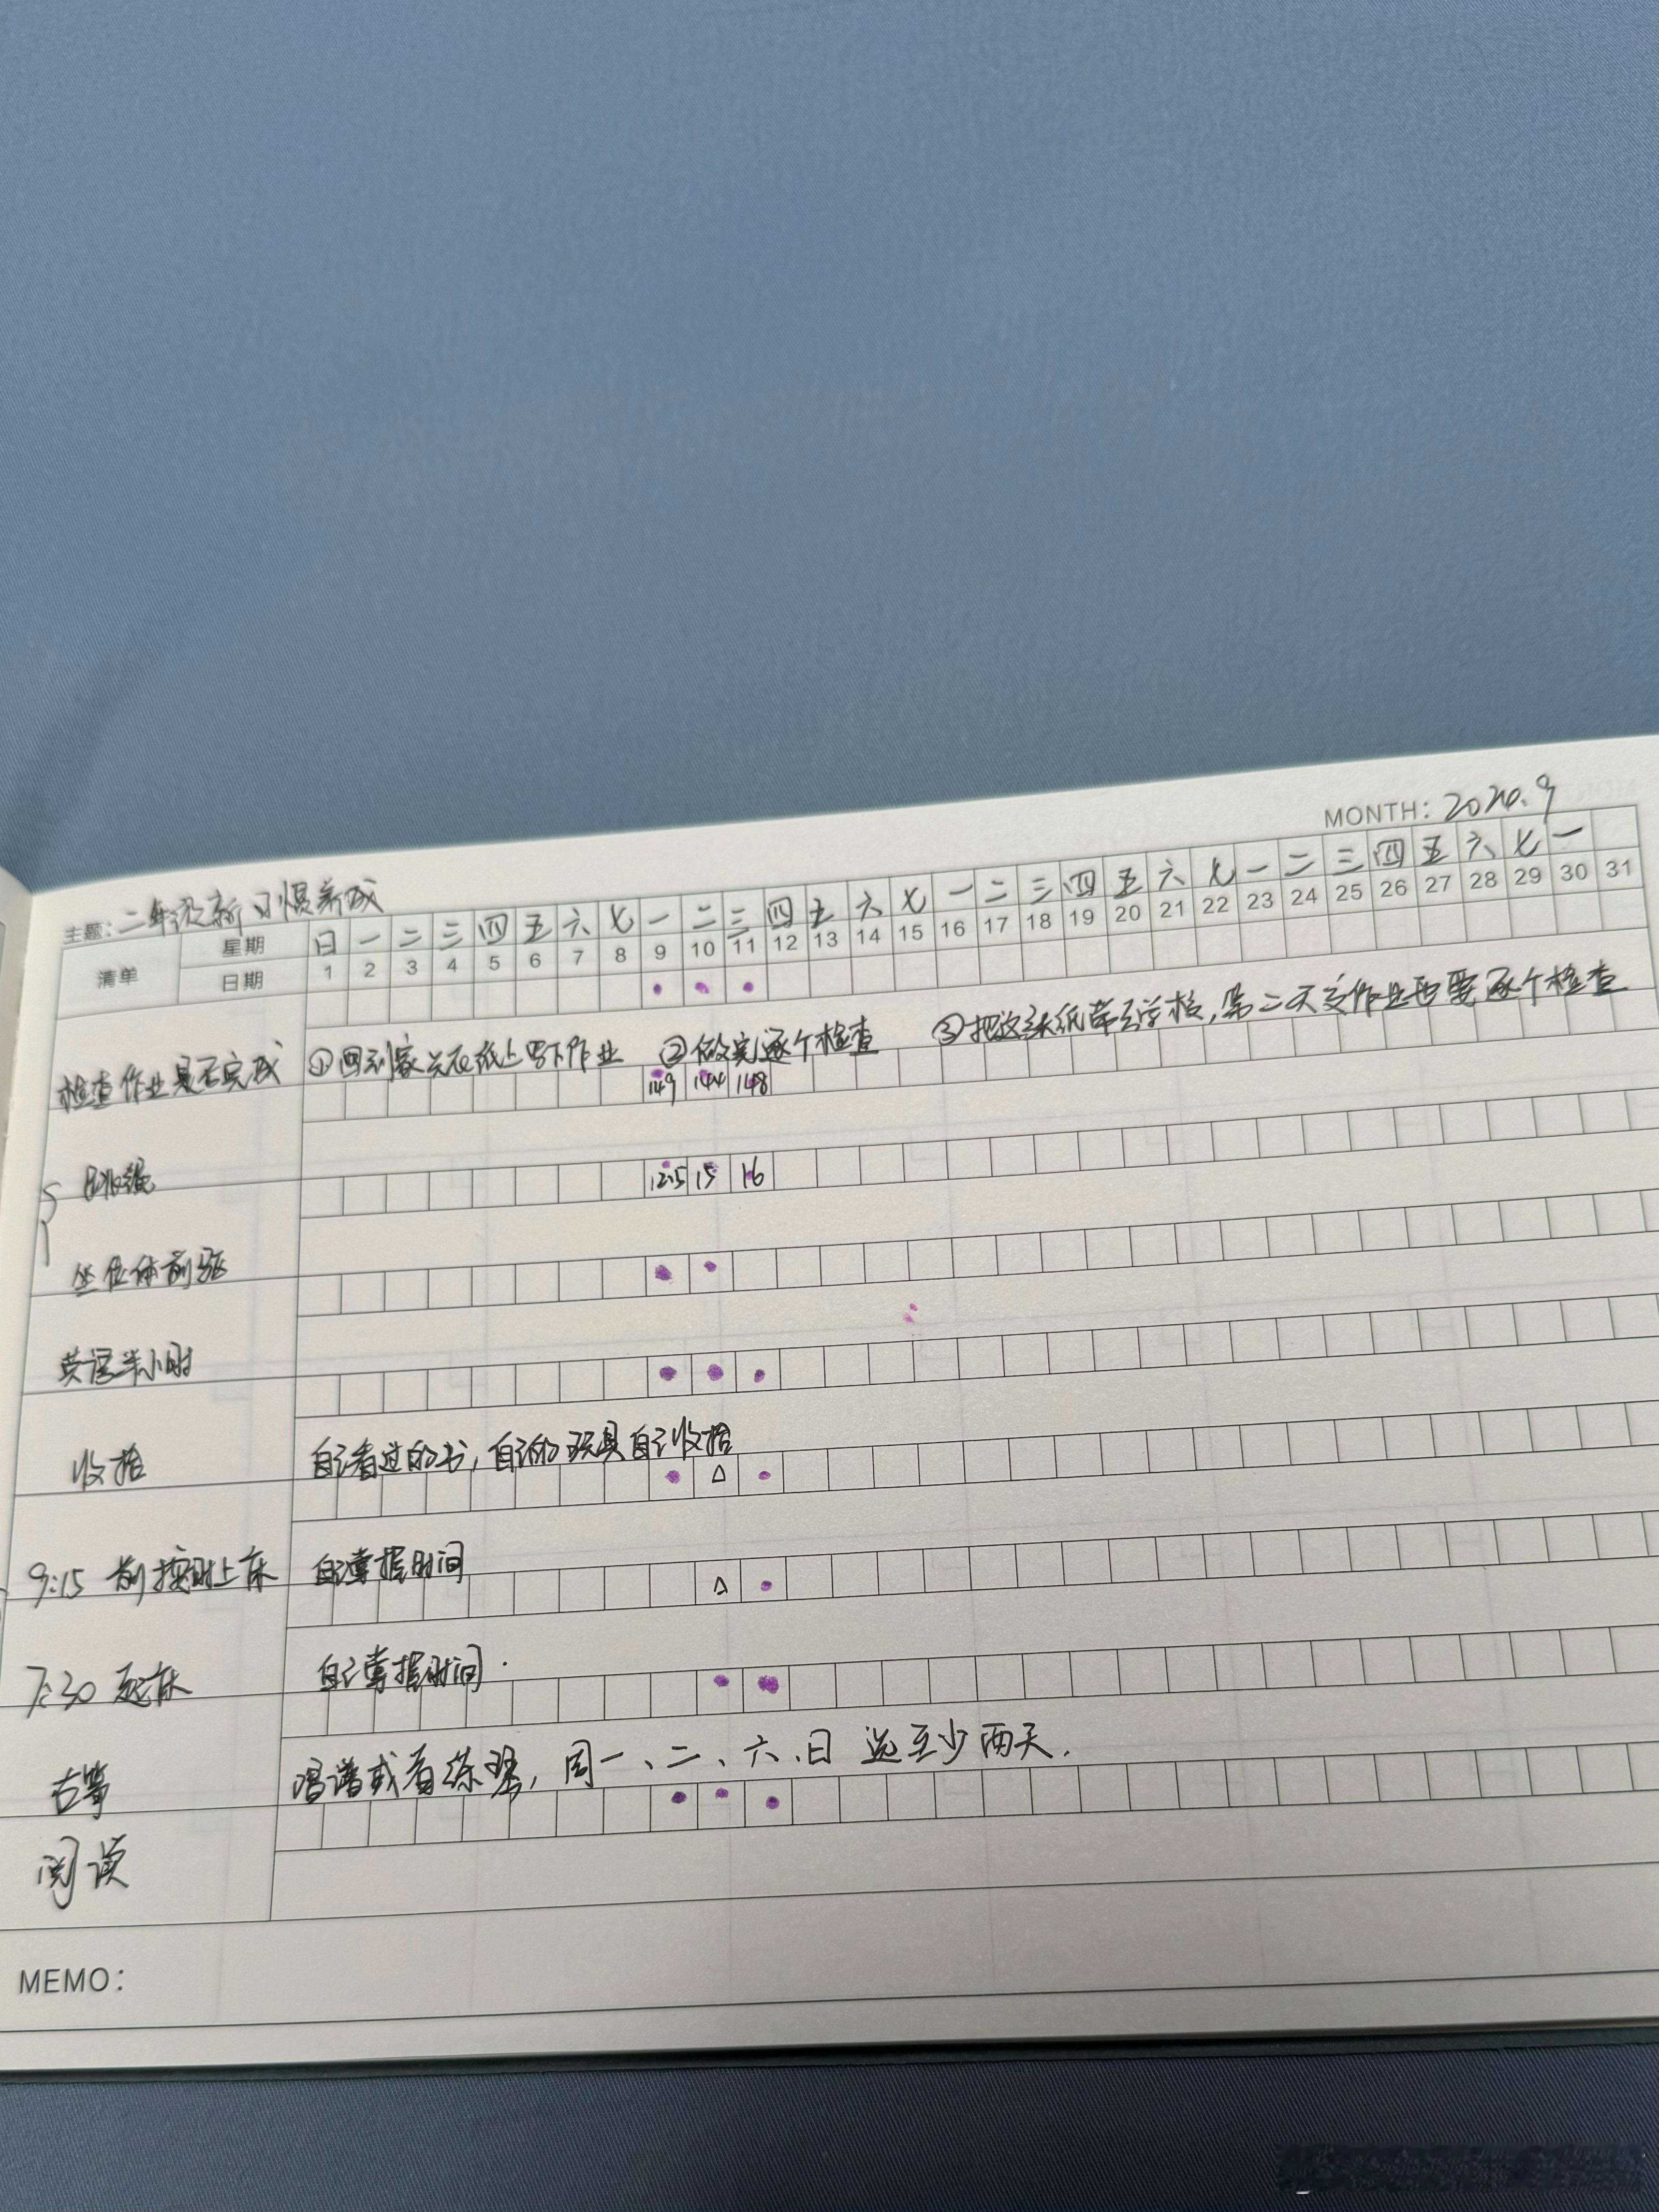 MONTH: 2024.9
主题: 二年级新习惯养成
清单 星期 日 一 二 三 四 五 六 七 一 二 三 四 五 六 七 一 二 三 四 五 六 七 一 二 三 四 五 六 七 一
日期 1 2 3 4 5 6 7 8 9 10 11 12 13 14 15 16 17 18 19 20 21 22 23 24 25 26 27 28 29 30 31
检查作业是否完成 ①回到家先在纸上写下作业 ②做完逐个检查 ③把这张纸带到学校,第二天交作业也要逐个检查
149 144 148
跳绳
12.5 15 16
坐位体前驱
英语半小时
收拾 自己看过的书,自己的玩具自己收拾
△
9:15 前按时上床 自己掌握时间
△
7:30 起床 自己掌握时间.
古筝 唱谱或者练琴,周一、二、六、日 选至少两天.
阅读
MEMO: